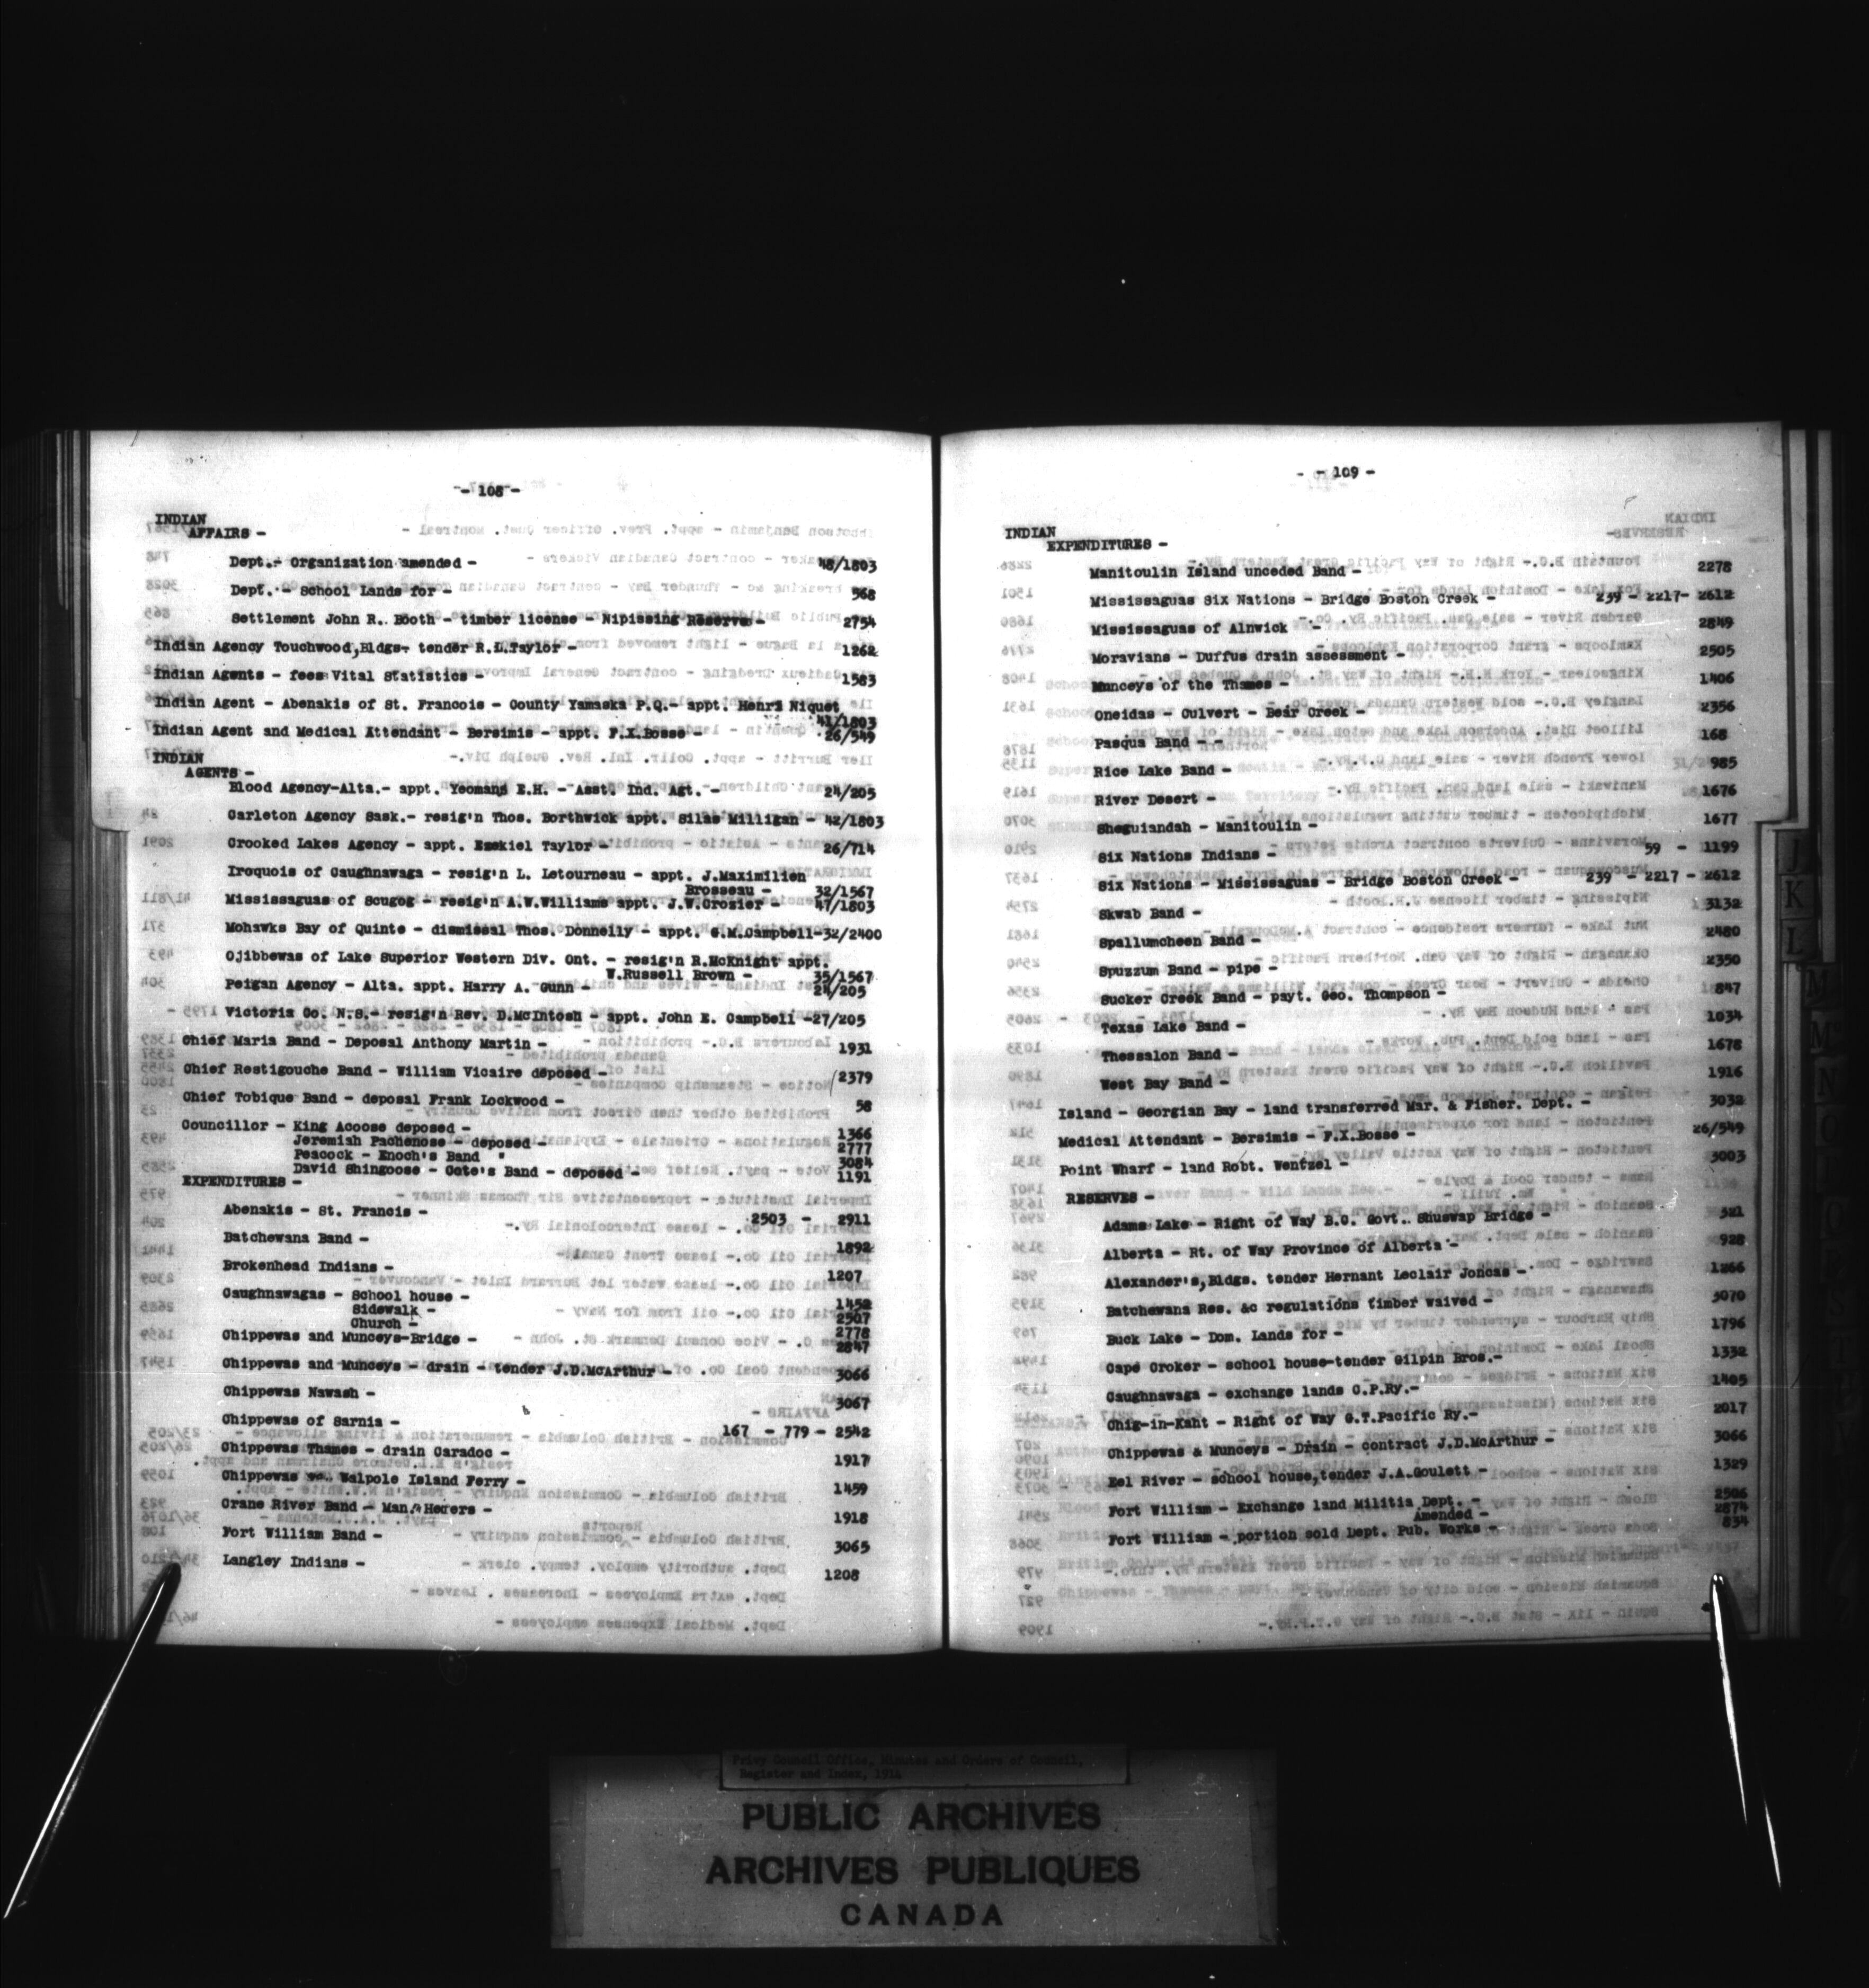 - 108 -
INDIAN
AFFAIRS -
Dept.- Organization amended - 48/1803
Dept. - School Lands for - 568
Settlement John R. Booth - timber license - Nipissing Reserve - 2754
Indian Agency Touchwood, Bldgs- tender R.L.Taylor - 1262
Indian Agents - fees Vital Statistics - 1583
Indian Agent - Abenakis of St. Francois - County Yamaska P.Q.- appt. Henri Niquet
41/1803
Indian Agent and Medical Attendant - Bersimis - appt. F.X.Bosse - 26/549
INDIAN
AGENTS -
Blood Agency-Alta.- appt. Yeomans E.H. - Asst. Ind. Agt. - 24/205
Carleton Agency Sask.- resig'n Thos. Borthwick appt. Silas Milligan - 42/1803
Crooked Lakes Agency - appt. Ezekiel Taylor - 26/714
Iroquois of Caughnawaga - resig'n L. Letourneau - appt. J.Maximilien
Brosseau - 32/1567
Mississaguas of Scugog - resig'n A.W.Williams appt. J.W.Crozier - 47/1803
Mohawks Bay of Quinte - dismissal Thos. Donnelly - appt. G.M.Campbell-32/2400
Ojibbewas of Lake Superior Western Div. Ont. - resig'n R.McKnight appt.
W.Russell Brown - 35/1567
Peigan Agency - Alta. appt. Harry A. Gunn - 24/205
Victoria Co. N.S.- resig'n Rev. D.McIntosh - appt. John E. Campbell -27/205
Chief Maria Band - Deposal Anthony Martin - 1931
Chief Restigouche Band - William Vicaire deposed - 2379
Chief Tobique Band - deposal Frank Lockwood - 58
Councillor - King Acoose deposed - 1366
Jeremiah Pachenose - deposed - 2777
Peacock - Enoch's Band " 3084
David Shingoose - Cote's Band - deposed - 1191
EXPENDITURES -
Abenakis - St. Francis - 2503 - 2911
Batchewana Band - 1892
Brokenhead Indians - 1207
Caughnawagas - School house - 1452
Sidewalk - 2507
Church - 2778
Chippewas and Munceys-Bridge - 2847
Chippewas and Munceys - drain - tender J.D.McArthur - 3066
Chippewas Nawash - 3067
Chippewas of Sarnia - 167 - 779 - 2542
Chippewas Thames - drain Caradoc - 1917
Chippewas Walpole Island Ferry - 1459
Crane River Band - Man. Heifers - 1918
Fort William Band - 3065
Langley Indians - 1208
- 109 -
INDIAN
EXPENDITURES -
Manitoulin Island unceded Band - 2278
Mississaguas Six Nations - Bridge Boston Creek - 239 - 2217- 2612
Mississaguas of Alnwick - 2849
Moravians - Duffus drain assessment - 2505
Munceys of the Thames - 1406
Oneidas - Culvert - Bear Creek - 2356
Pasqua Band - - 168
Rice Lake Band - 985
River Desert - 1676
Sheguiandah - Manitoulin - 1677
Six Nations Indians - 59 - 1199
Six Nations - Mississaguas - Bridge Boston Creek - 239 - 2217 - 2612
Skwab Band - 3132
Spallumcheen Band - 2480
Spuzzum Band - pipe - 2350
Sucker Creek Band - payt. Geo. Thompson - 847
Texas Lake Band - 1034
Thessalon Band - 1678
West Bay Band - 1916
Island - Georgian Bay - land transferred Mar. & Fisher. Dept. - 3032
Medical Attendant - Bersimis - F.X.Bosse - 26/549
Point Wharf - land Robt. Wentzel - 3003
RESERVES -
Adams Lake - Right of Way B.C. Govt.. Shuswap Bridge - 321
Alberta - Rt. of Way Province of Alberta - 928
Alexander's, Bldgs. tender Hernant Leclair Joncas - 1266
Batchewana Res. &c regulations timber waived - 3070
Buck Lake - Dom. Lands for - 1796
Cape Croker - school house-tender Gilpin Bros.- 1332
Caughnawaga - exchange lands C.P.Ry.- 1405
Chig-in-Kaht - Right of Way G.T.Pacific Ry.- 2017
Chippewas & Munceys - Drain - contract J.D.McArthur - 3066
Eel River - school house, tender J.A.Goulett - 1329
Fort William - Exchange land Militia Dept. - 2506
Amended - 2874
Fort William - portion sold Dept. Pub. Works - 834
J
K
L
M
N
Privy Council Office, Minutes and Orders of Council,
Register and Index, 1914
PUBLIC ARCHIVES
ARCHIVES PUBLIQUES
CANADA